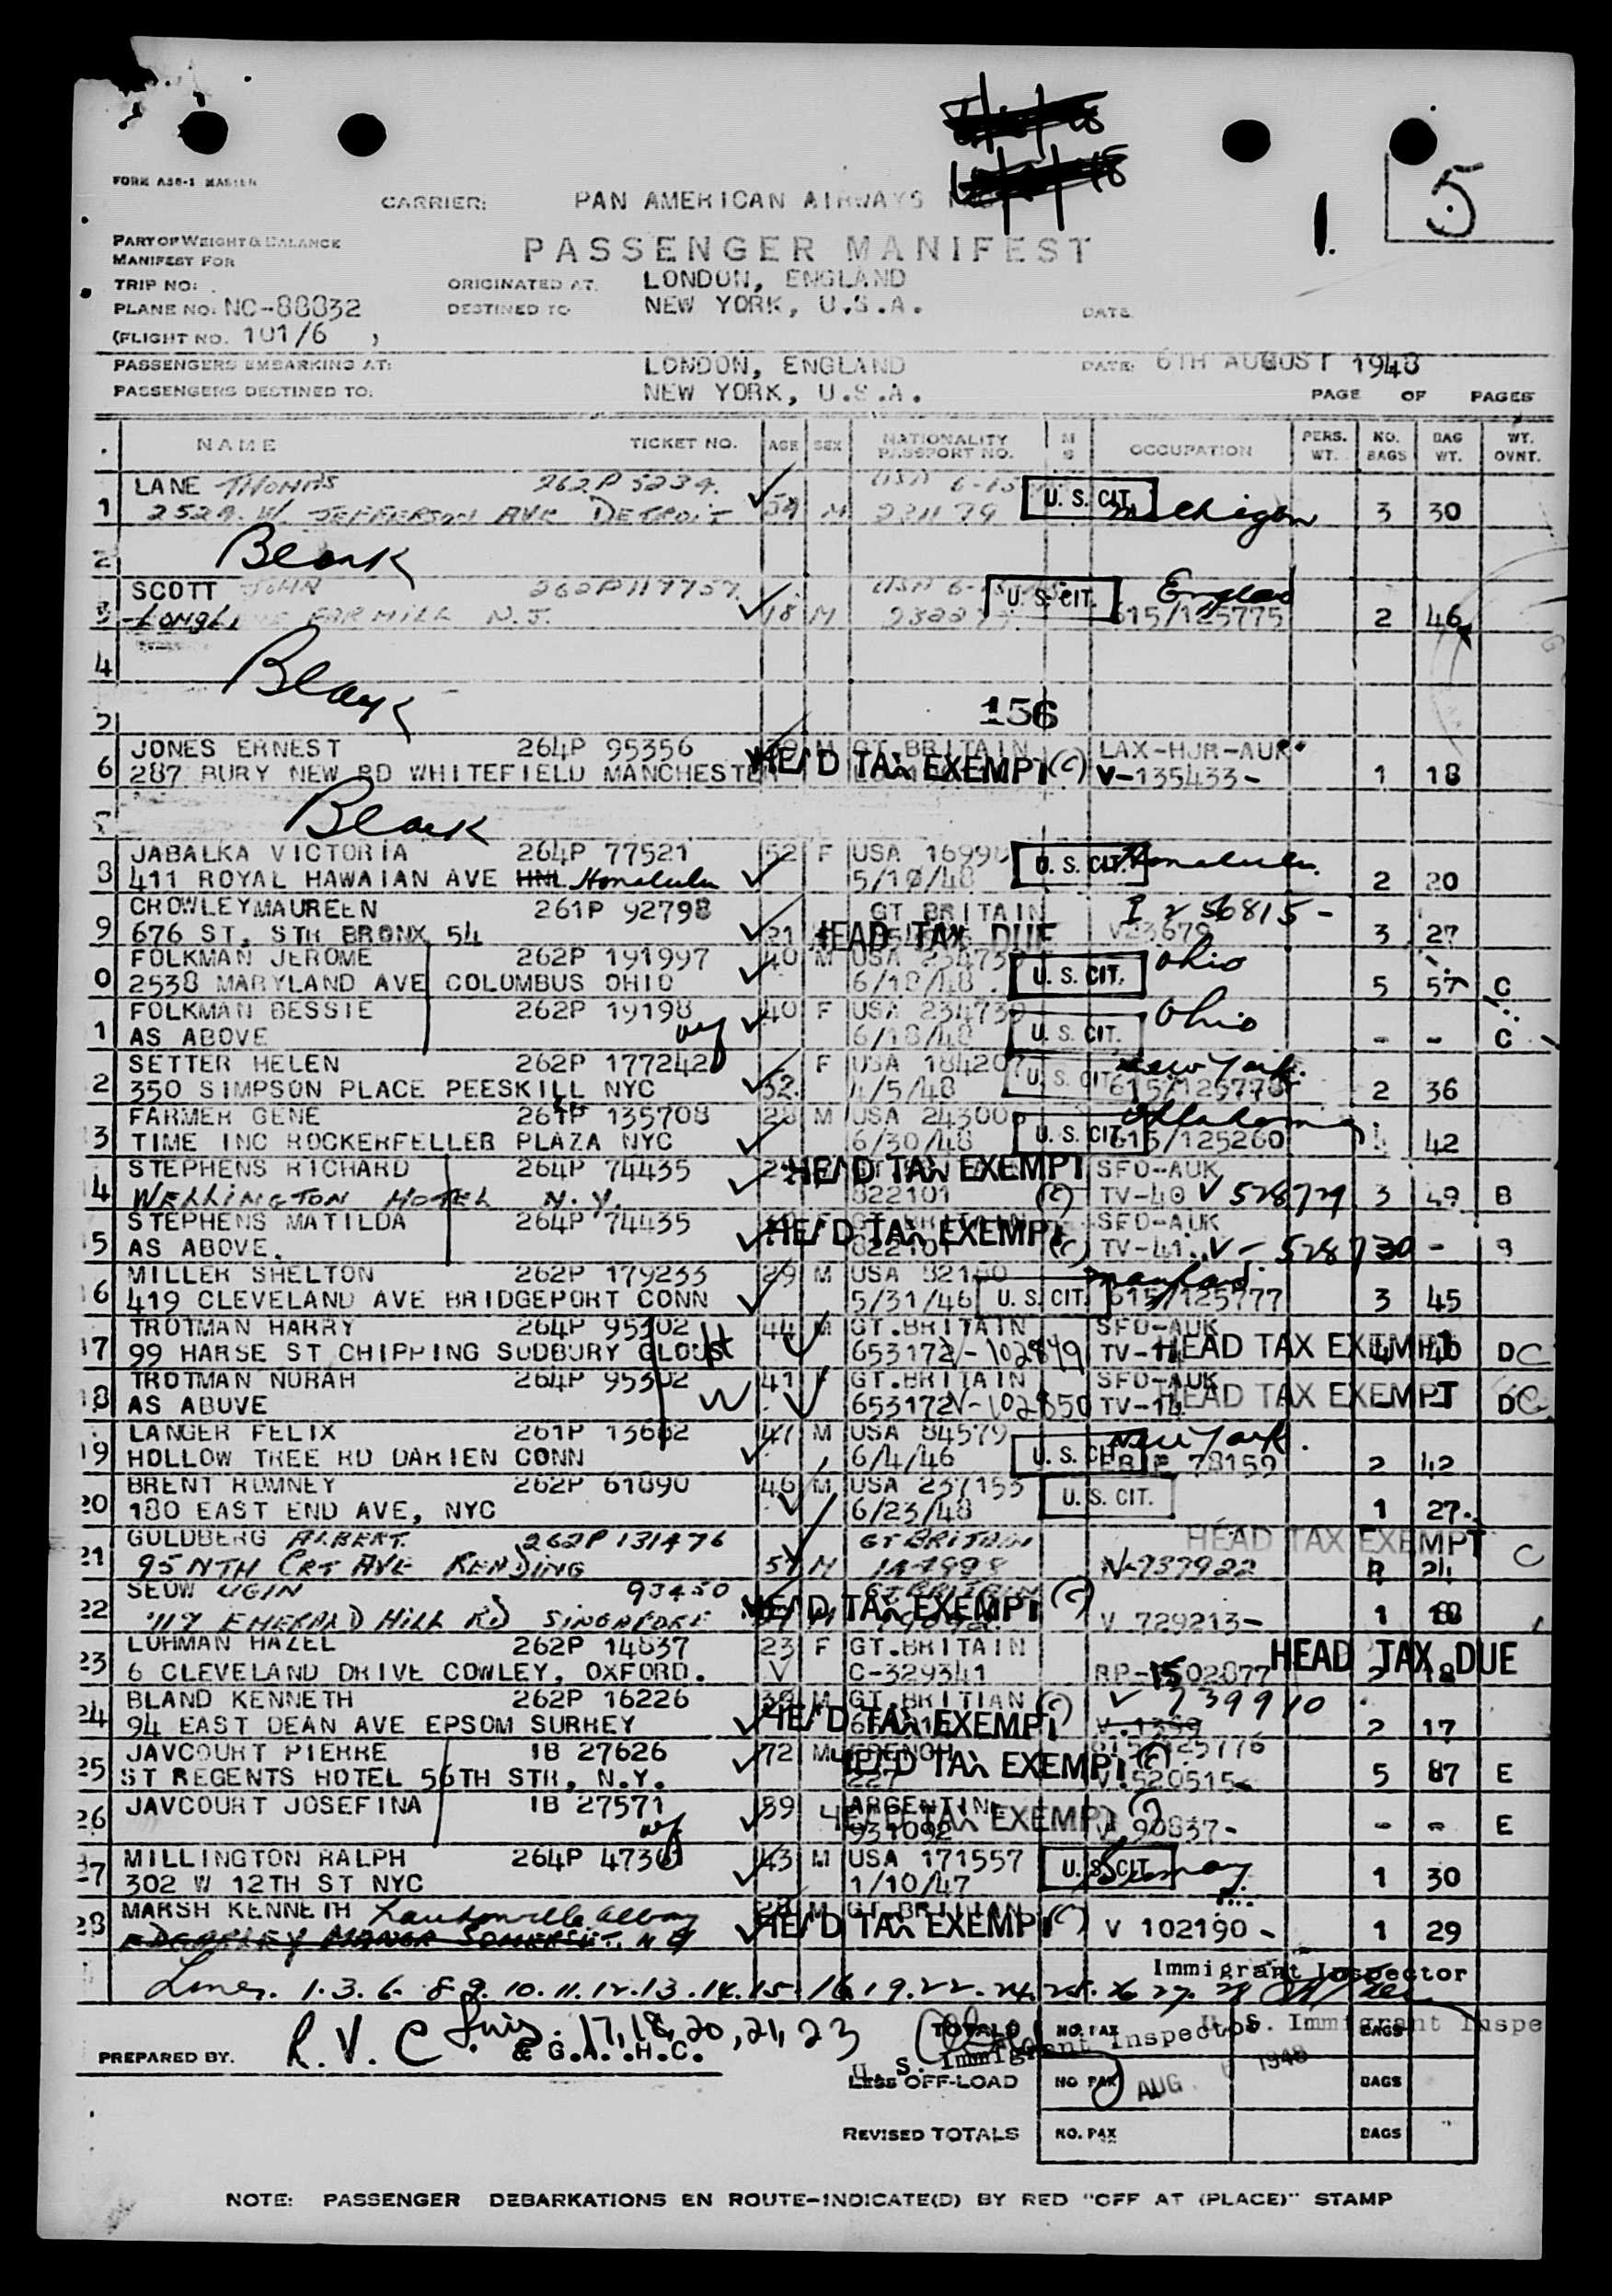 FORM ASB-1 MASTER
CARRIER: PAN AMERICAN AIRWAYS
1. 5
PART OF WEIGHT & BALANCE
MANIFEST FOR
PASSENGER MANIFEST
TRIP NO: ORIGINATED AT. LONDON, ENGLAND
PLANE NO. NC-88832 DESTINED TO NEW YORK, U.S.A. DATE
(FLIGHT NO. 101/6 )
PASSENGERS EMBARKING AT: LONDON, ENGLAND DATE: 6TH AUGUST 1948
PASSENGERS DESTINED TO: NEW YORK, U.S.A. PAGE OF PAGES
NAME TICKET NO. AGE SEX NATIONALITY PASSPORT NO. M S OCCUPATION PERS. WT. NO. BAGS BAG WT. WT. OVNT.
LANE THOMAS 262P 5234. USA
1 2529. W. JEFFERSON AVE DETROIT M U. S. CIT. Michigan 3 30
2 Blank
SCOTT JOHN 262P117757. USA England
3 FAR HILL N.J. 18 M U. S. CIT. 615/125775 2 46
4 Blank
5 156
JONES ERNEST 264P 95356 M GT.BRITAIN LAX-HJR-AUK
6 287 BURY NEW RD WHITEFIELD MANCHESTER HEAD TAX EXEMPT (C) V-135433- 1 18
7 Blank
JABALKA VICTORIA 264P 77521 52 F USA U. S. CIT. Honolulu.
8 411 ROYAL HAWAIAN AVE HNL Honolulu 5/10/48 2 20
CROWLEY MAUREEN 261P 92798 GT BRITAIN I 256815-
9 676 ST, STH BRONX 54 21 HEAD TAX DUE V 3679 3 27
FOLKMAN JEROME 262P 191997 40 M USA Ohio
0 2538 MARYLAND AVE COLUMBUS OHIO 6/18/48 U. S. CIT. 5 57 C
FOLKMAN BESSIE 262P 19198 40 F USA 234739 Ohio
1 AS ABOVE 6/18/48 U. S. CIT. - - C
SETTER HELEN 262P 177242 F USA 184207 New York.
2 350 SIMPSON PLACE PEESKILL NYC 32. 4/5/48 U. S. CIT. 2 36
FARMER GENE 261P 135708 28 M USA Oklahoma
3 TIME INC ROCKERFELLER PLAZA NYC 6/30/48 U. S. CIT. 615/125260 42
STEPHENS RICHARD 264P 74435 HEAD TAX EXEMPT SFO-AUK
4 WELLINGTON HOTEL N.Y. 822101 (C) TV-40 V 528729 3 49 B
STEPHENS MATILDA 264P 74435 F HEAD TAX EXEMPT SFO-AUK
5 AS ABOVE. 822101 (C) TV-41. V- 528730 -
MILLER SHELTON 262P 179233 29 M USA Maryland.
16 419 CLEVELAND AVE BRIDGEPORT CONN 5/31/46 U. S. CIT. 615/125777 3 45
TROTMAN HARRY 264P 95302 44 M GT.BRITAIN SFO-AUK
17 99 HARSE ST CHIPPING SODBURY GLOUS H 653172 V-102849 TV- HEAD TAX EXEMPT DC
TROTMAN NORAH 264P 95302 41 F GT.BRITAIN SFO-AUK
18 AS ABOVE W 653172 V-102850 TV-14 HEAD TAX EXEMPT DC
LANGER FELIX 261P 47 M USA 84579 New York.
19 HOLLOW TREE RD DARIEN CONN 6/4/46 U. S. CIT. 78159 2 42
BRENT ROMNEY 262P 61890 46 M USA 237153
20 180 EAST END AVE, NYC 6/23/48 U. S. CIT. 1 27.
GOLDBERG ALBERT. 262P 131476 GT BRITAIN HEAD TAX EXEMPT C
21 95 NTH CRT AVE READING 57 M V-737922
SEOW UGIN 93450 GT BRITAIN
22 EMERALD HILL RD SINGAPORE M HEAD TAX EXEMPT (C) V 729213- 1 18
LOHMAN HAZEL 262P 14837 23 F GT.BRITAIN
23 6 CLEVELAND DRIVE COWLEY, OXFORD. C-329341 HEAD TAX DUE
BLAND KENNETH 262P 16226 M GT.BRITIAN (C) V 739910
24 94 EAST DEAN AVE EPSOM SURREY HEAD TAX EXEMPT 2 17
JAVCOURT PIERRE IB 27626 72 M FRENCH HEAD TAX EXEMPT (C)
25 ST REGENTS HOTEL 56TH STR, N.Y. 227 V.520515- 5 87 E
JAVCOURT JOSEFINA IB 27571 39 ARGENTINE HEAD TAX EXEMPT
26 wf 931092 V 90837- - - E
MILLINGTON RALPH 264P 43 M USA 171557
27 302 W 12TH ST NYC 1/10/47 U. S. CIT. 1 30
MARSH KENNETH Loudonville Albany 28 M GT.BRITIAN
28 HEAD TAX EXEMPT V 102190 - 1 29
Immigrant Inspector
Lines. 1.3.6. 8.9. 10.11.12.13.14.15. 16. 19.22.24.25.26 27. 28
PREPARED BY. R. V. C & G.A. H.C. Lines. 17, 18, 20, 21, 23
TOTALS NO. PAX BAGS
U. S. Immigrant Inspector U. S. Immigrant Inspe
LESS OFF-LOAD NO PAX AUG 1948 BAGS
REVISED TOTALS NO. PAX BAGS
NOTE: PASSENGER DEBARKATIONS EN ROUTE-INDICATE(D) BY RED "OFF AT (PLACE)" STAMP